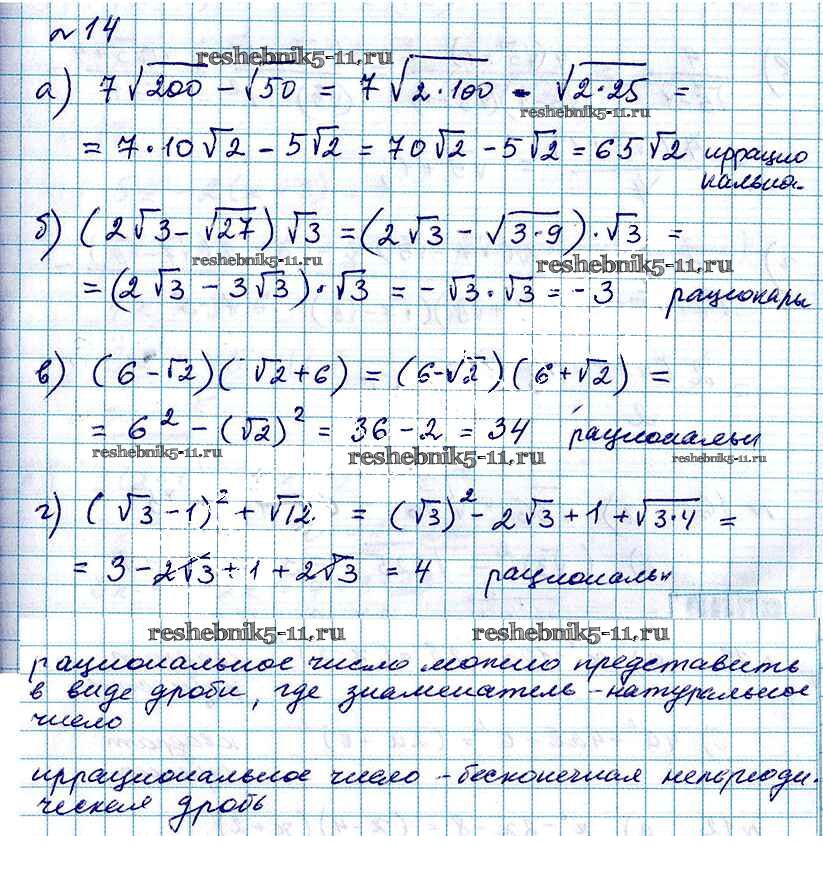 №14
reshebnik5-11.ru
а) 7√200 - √50 = 7√2·100 - √2·25 =
reshebnik5-11.ru
= 7·10√2 - 5√2 = 70√2 - 5√2 = 65√2 иррацио
нальна.
б) (2√3 - √27)√3 = (2√3 - √3·9)·√3 =
reshebnik5-11.ru reshebnik5-11.ru
= (2√3 - 3√3)·√3 = -√3·√3 = -3
в) (6-√2)(√2+6) = (6-√2)(6+√2) =
= 6² - (√2)² = 36 - 2 = 34 рациональн
reshebnik5-11.ru reshebnik5-11.ru reshebnik5-11.ru
г) (√3-1)² + √12 = (√3)² - 2√3 + 1 + √3·4 =
= 3 - 2√3 + 1 + 2√3 = 4 рациональн
reshebnik5-11.ru reshebnik5-11.ru
рациональное число можно представить
в виде дроби, где знаменатель - натуральное
число
иррациональное число - бесконечная непериоди-
ческая дробь